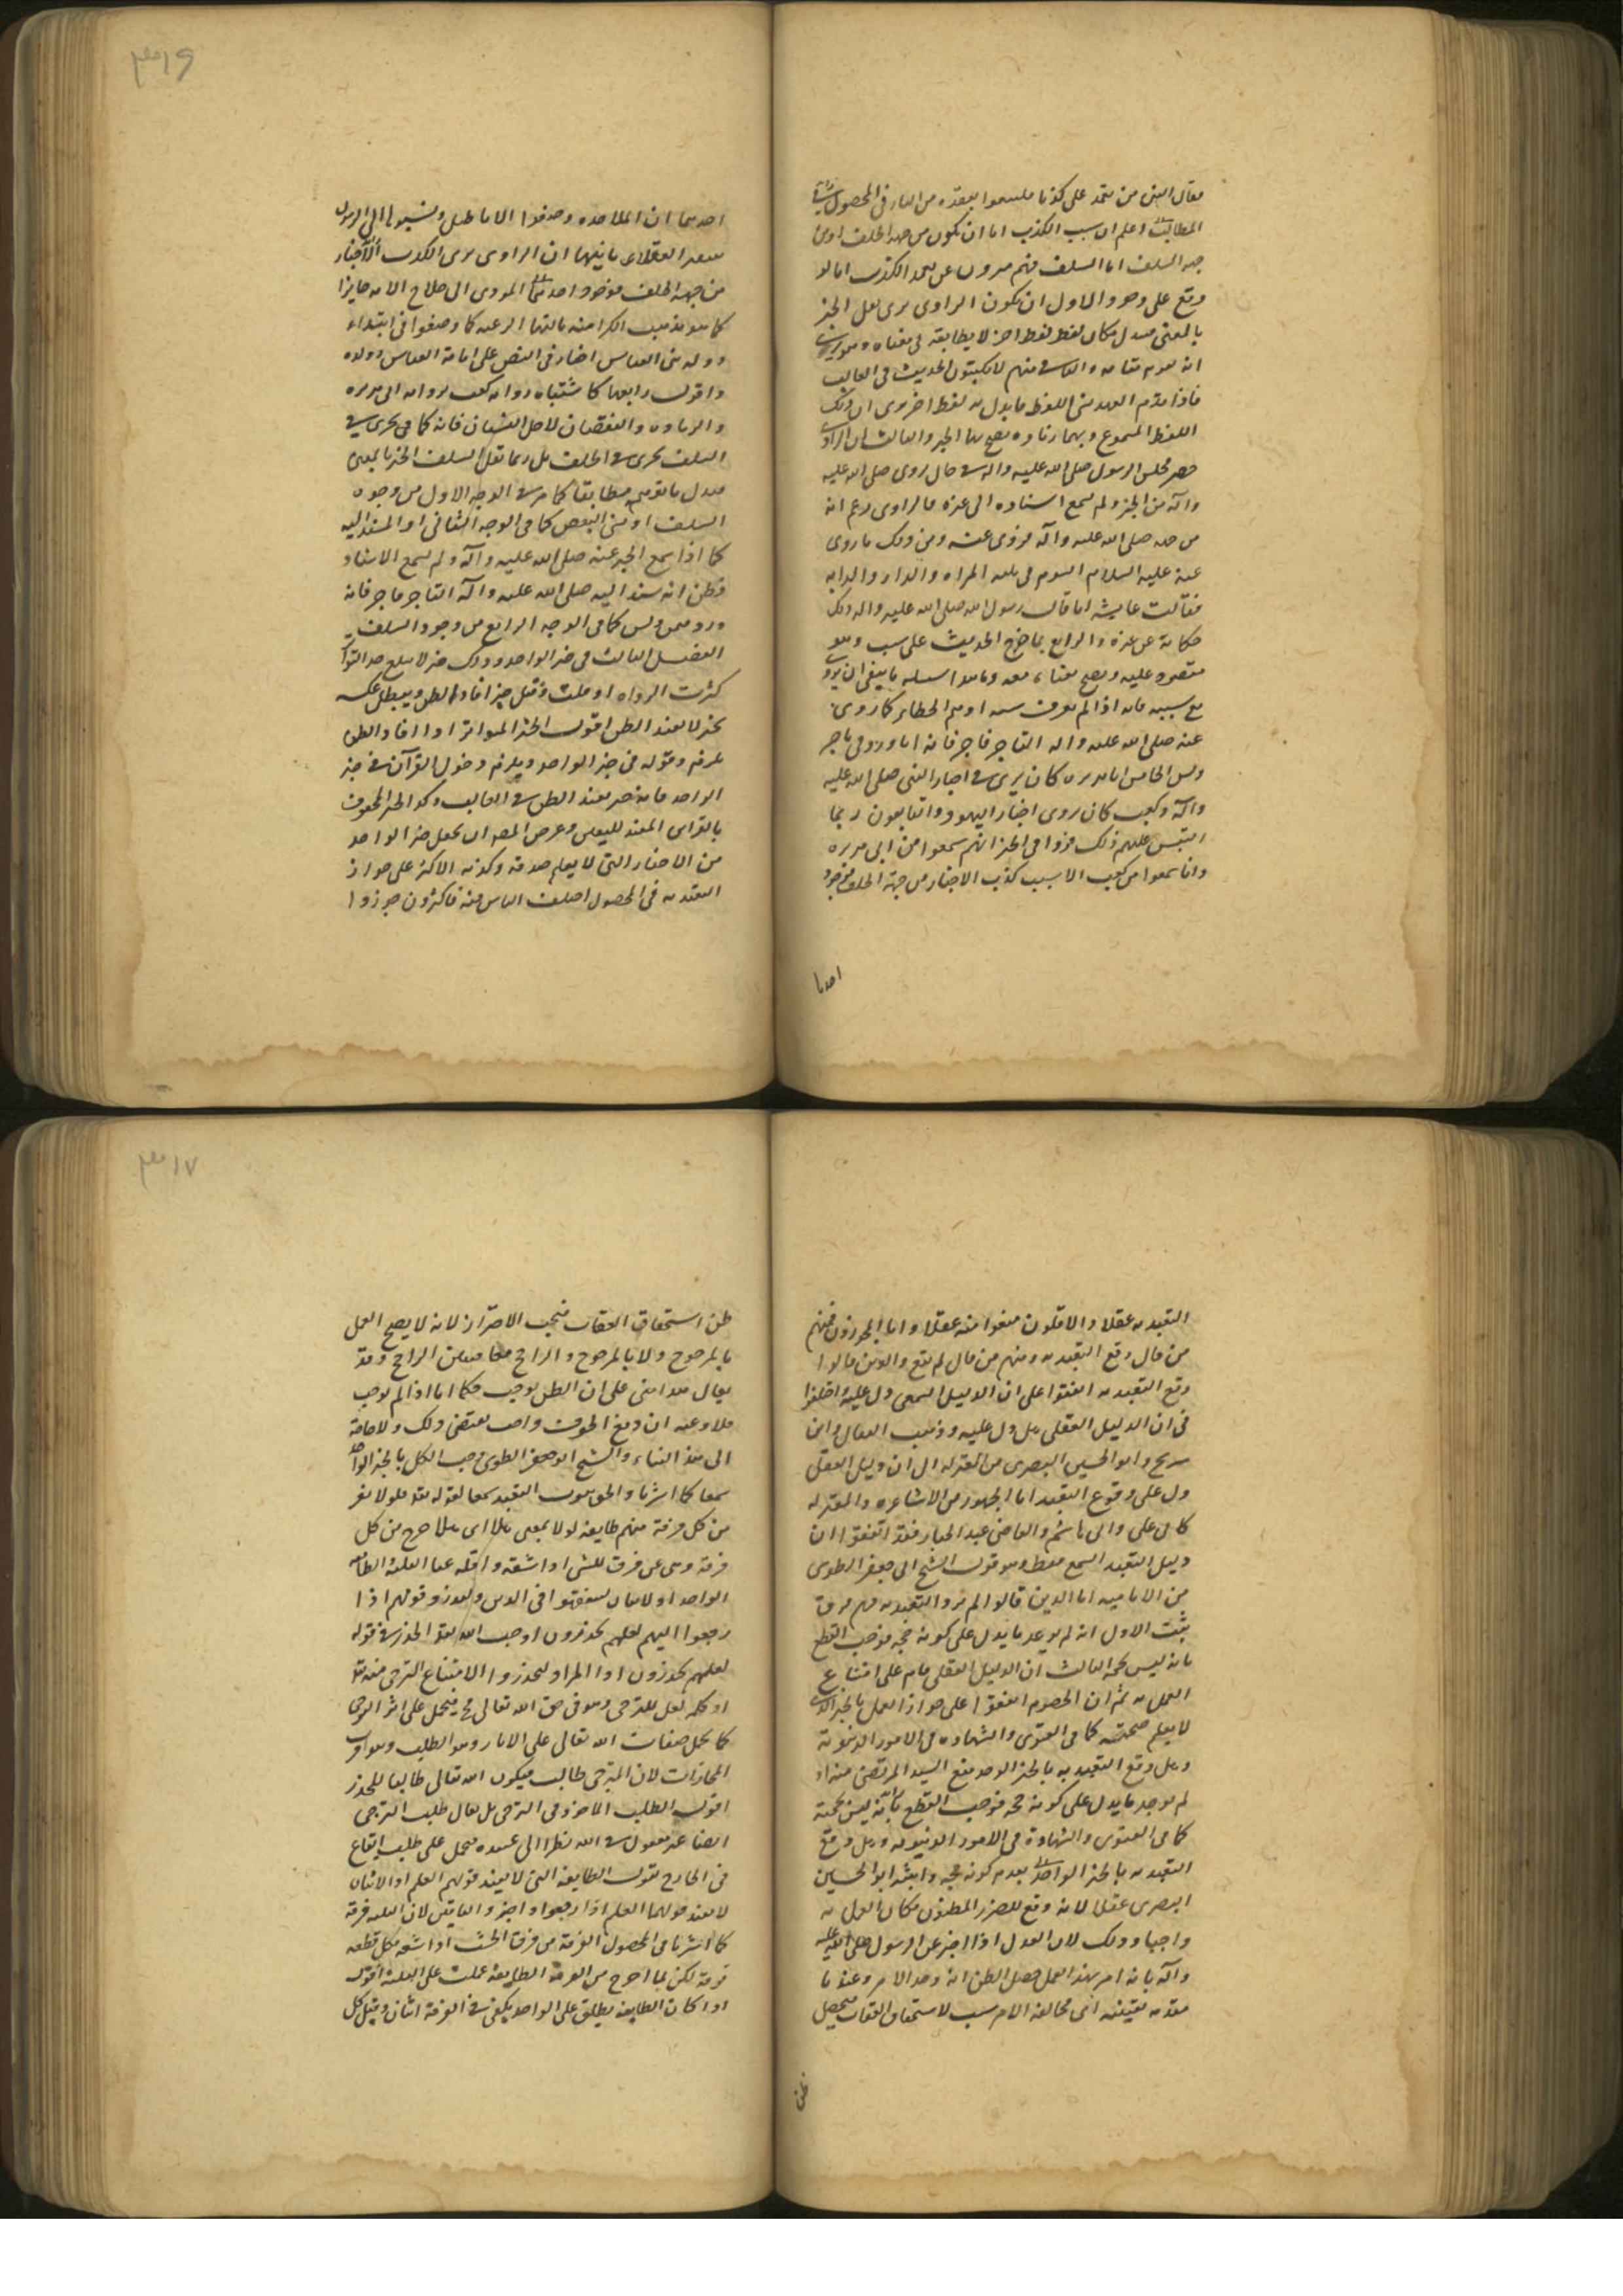 فقال النبي من تعمد على كذبا فليتبوأ مقعده من النار في المحصول
المطالب اعلم ان سبب الكذب اما ان يكون من جهه الخلف او من
جهه السلف اما السلف فهم منزهون عن تعمد الكذب اما لو
وقع على وجوه الاول ان يكون الراوى يرى نقل الخبر
بالمعنى فيبدل مكان لفظ لفظ اخر لا يطابقه في معناه وهو يرى
انه يقوم مقامه والثاني منهم لا يكتبون الحديث في الغالب
فاذا قدم العهد نسى اللفظ فابدل به لفظ اخر يرى ان ذلك
اللفظ المسموع وبهما زياده يصح بها الخبر والثالث ان الراوى
حضر مجلس الرسول صلى الله عليه واله في حال روى صلى الله عليه
وآله من الخبر ولم يسمع اسناده الى غيره فالراوى زعم انه
من جهه صلى الله عليه وآله فروى عنه ومن ذلك ما روى
عنه عليه السلام الشوم في ثلثه المراه والدار والدابه
فقالت عايشه اما قال رسول الله صلى الله عليه واله ذلك
حكاية عن غيره والرابع بما خرج الحديث على سبب وهو
مقصور عليه ويصح معناه معه وما هذا سبيله فينبغي ان يروى
مع سببه فانه اذا لم يعرف سببه اوهم الخطا كما روى
عنه صلى الله عليه واله التاجر فاجر فانه اما ورد في تاجر
دلس الخامس اباهريره كان يروى اخبار النبي صلى الله عليه
وآله وكعب كان يروى اخبار اليهود والتابعون ربما
التبس عليهم ذلك فرووا في الخبر انهم سمعوا من ابى هريره
وانما سمعوا من كعب الا سبب كذب الاخبار من جهة الخلف فوجوه
احدها
٣١٦
احدهما ان الملاحده وضعوا الاباطيل ونسبوها الى الرسول
العقلاء ثانيهما ان الراوى يرى الكذب الاخبار
من جهه الخلف فوجوه احدهما المودى الى صلاح الامه جايزا
كما هو مذهب الكراميه ثالثها الرغبه كما وضعوا في ابتداء
دوله بنى العباس اخبار في النص على امامة العباس وولده
واقول رابعها كاشتباه رواية كعب بروايه ابى هريره
والزياده والنقصان لاجل النسيان فانه كما في يجرى في
السلف يجرى في الخلف بل ربما نقل السلف الخبر بالمعنى
فيبدل ما توهم مطابقا كما مر في الوجه الاول من وجوه
السلف او نسى البعض كما في الوجه الثاني او المسند اليه
كما اذا سمع الخبر عنه صلى الله عليه وآله ولم يسمع الاسناد
فظن انه سند اليه صلى الله عليه وآله التاجر فاجر فانه
ورد فيمن دلس كما في الوجه الرابع من وجوه السلف
الفصل الثالث في خبر الواحد وذلك خبر لا يبلغ حد التواتر
كثرت الرواه او قلت وقيل خبر افاد الظن ويبطل عكسه
بخبر لا يفيد الظن اقول الخبر المتواتر اذا افاد الظن
يلزم دخوله في خبر الواحد ويلزم دخول القرآن في خبر
الواحد فانه خبر يفيد الظن في الغالب وكذا الخبر المحفوف
بالقراين المفيد لليقين وغرض المصه ان يجعل خبر الواحد
من الاخبار التي لا يعلم صدقه وكذبه الاكثر على جواز
التعبد به في المحصول اختلف الناس فيه فالاكثرون جوزوا
التعبد به عقلا والاقلون منعوا منه عقلا واما المجوزون فمنهم
من قال وقع التعبد به ومنهم من قال لم يقع والذين قالوا
وقع التعبد به اتفقوا على ان الدليل السمعى دل عليه واختلفوا
في ان الدليل العقلى هل دل عليه وذهب القفال وابن
سريج وابو الحسين البصرى من المعتزله الى ان دليل العقل
دل على وقوع التعبد اما الجمهور من الاشاعره والمعتزله
كابى على وابى هاشم والقاضى عبد الجبار فقد اتفقوا ان
دليل التعبد السمع فقط وهو قول الشيخ ابى جعفر الطوسى
من الاماميه اما الذين قالوا لم يرد التعبد به فهم فرق
ثلث الاول انه لم يوجد ما يدل على كونه حجه فوجب القطع
بانه ليس بحجه الثالث ان الدليل العقلى قام على امتناع
العمل به ثم ان الخصوم اتفقوا على جواز العمل بالخبر الذى
لا يعلم صحته كما في الفتوى والشهاده في الامور الدنيويه
وهل وقع التعبد به بالخبر الواحد منع السيد المرتضى منه اذ
لم يوجد ما يدل على كونه حجه فوجب القطع بانه ليس بحجة
كما في الفتوى والشهادة في الامور الدنيويه وهل وقع
التعبد به بالخبر الواحد بعدم كونه حجه واثبته ابو الحسين
البصرى عقلا لانه دفع للضرر المظنون فكان العمل به
واجبا وذلك لان العدل اذا اخبر عن الرسول صلى الله عليه
وآله بانه امر بهذا العمل حصل الظن انه وجد الامر وعندنا
مقدمه يقينيه ان مخالفه الامر سبب لاستحقاق العقاب فيحصل
ظن
٣١٧
ظن استحقاق العقاب فيجب الاحتراز لانه لا يصح العمل
بالمرجوح ولا بالمرجوح والراجح معا فتعين الراجح وقد
يقال هذا مبنى على ان الظن يوجب حكما اما اذا لم يوجب
فلا وعنه ان دفع الخوف واجب يقتضى ذلك ولا حاجة
الى هذا البناء والشيخ ابو جعفر الطوسى وجب الكل بالخبر الواحد
سمعا كما اشرنا والحق ثبوت التعبد سمعا لقوله تعه فلولا نفر
من كل فرقة منهم طايفه لولا بمعنى هلا اى هلا خرج من كل
فرقة وهى من فرق للشى اذا شقه واقله عنا الثلثه الطايفه
الواحد او لاثنان ليتفقهوا في الدين ولينذروا قومهم اذا
رجعوا اليهم لعلهم يحذرون اوجب الله تعه الحذر في قوله
لعلهم يحذرون اذ المراد ليحذروا الامتناع الترجى منه تعه
او كلمه لعل للترجى وهو في حق الله تعالى مح فيحمل على اثر الترجى
كما يحمل صفات الله تعالى على الاثار وهو الطلب وهو اقرب
المجازات لان المترجى طالب فيكون الله تعالى طالبا للحذر
اقول الطلب الماخوذ في الترجى بل يقال طلب الترجى
ايضا غير معقول في الله نظرا الى عبيده فيحمل على طلب ايقاع
في الخارج بقول الطايفه التي لا يفيد قولهم العلم اذ الاثنان
لا يفيد قولهما العلم اذا رجعوا واخبروا الباقين لان الثلثه فرقة
كما اشرنا في المحصول الفرقة من فرقت الخشب اذا شقه فكل قطعه
فرقة لكن لما اخرج من الفرقه الطايفه حملت على الثلثه اقول
اذا كان الطايفه يطلق على الواحد يكفى في الفرقة اثنان وقيل كل